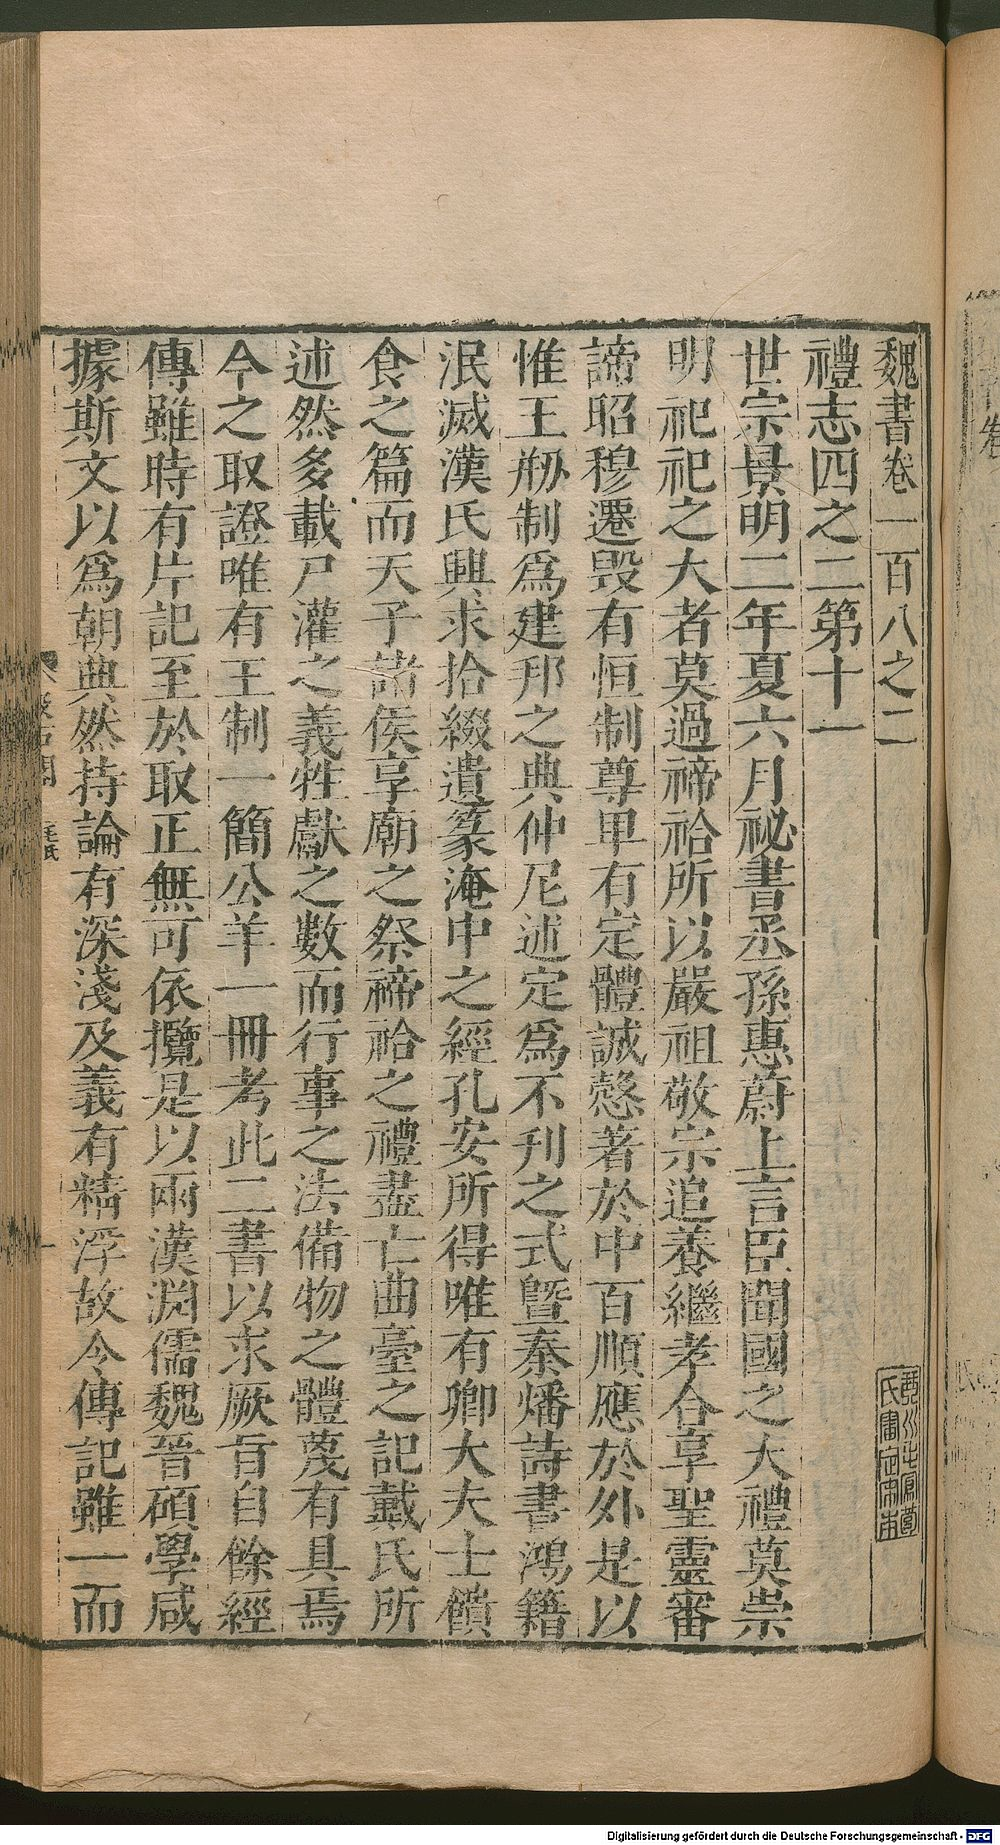 魏書卷一百八之二
禮志四之二第十一
世宗景明二年夏六月祕書丞孫惠蔚上言臣聞國之大禮莫崇
明祀祀之大者莫過禘祫所以嚴祖敬宗追養繼孝合享聖靈審
諦昭穆遷毁有恒制尊卑有定體誠慤著於中百順應於外是以
惟王剏制爲建邦之典仲尼述定爲不刊之式曁秦燔詩書鴻籍
泯滅漢氏興求拾綴遺篆淹中之經孔安所得唯有卿大夫士饋
食之篇而天子諸侯享廟之祭禘祫之禮盡亡曲臺之記戴氏所
述然多載尸灌之義牲獻之數而行事之法備物之體蔑有具焉
今之取證唯有王制一簡公羊一冊考此二書以求厥旨自餘經
傳雖時有片記至於取正無可依攬是以兩漢淵儒魏晉碩學咸
據斯文以爲朝典然持論有深淺及義有精浮故令傳記雖一而
毛氏
Digitalisierung gefördert durch die Deutsche Forschungsgemeinschaft - DFG